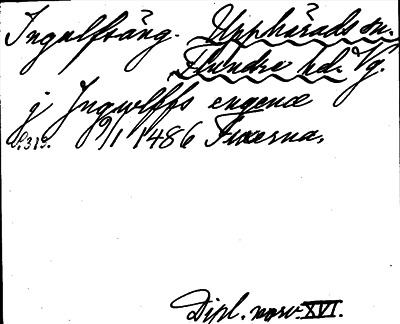 Ingulfsäng. Upphärads sn.
Flundre hd. Vg.
j Jngwlffs engenæ
s. 313. 9/1 1486 Fuxerna,
Dipl. norv. XVI.